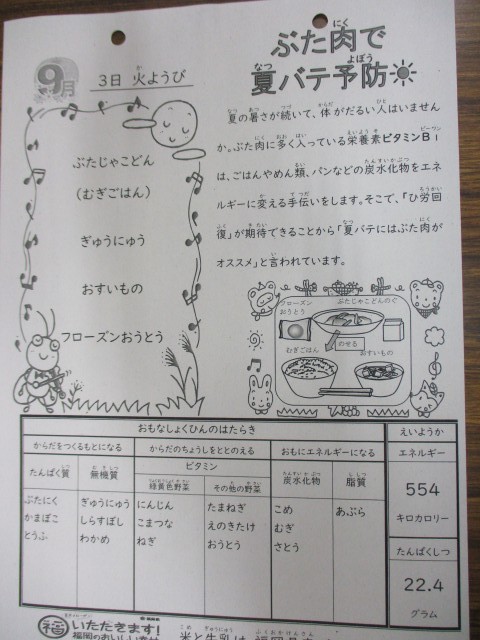 ぶた肉で
夏バテ予防
9月
3日 火ようび
ぶたじゃこどん
(むぎごはん)
ぎゅうにゅう
おすいもの
フローズンおうとう
夏の暑さが続いて、体がだるい人はいません
か。ぶた肉に多く入っている栄養素ビタミンB1
は、ごはんやめん類、パンなどの炭水化物をエネ
ルギーに変える手伝いをします。そこで、「ひ労回
復」が期待できることから「夏バテにはぶた肉が
オススメ」と言われています。
フローズン
おうとう
ぶたじゃこどんのぐ
のせる
むぎごはん
おすいもの
おもなしょくひんのはたらき
からだをつくるもとになる
からだのちょうしをととのえる
おもにエネルギーになる
たんぱく質
無機質
ビタミン
緑黄色野菜
その他の野菜
炭水化物
脂質
ぶたにく
かまぼこ
とうふ
ぎゅうにゅう
しらすぼし
わかめ
にんじん
こまつな
ねぎ
たまねぎ
えのきたけ
おうとう
こめ
むぎ
さとう
あぶら
えいようか
エネルギー
554
キロカロリー
たんぱくしつ
22.4
グラム
福 いただきます!
福岡のおいしい
米と牛乳は